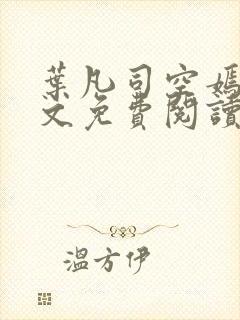 葉凡司空嫣
文免費閱讀
溫方伊